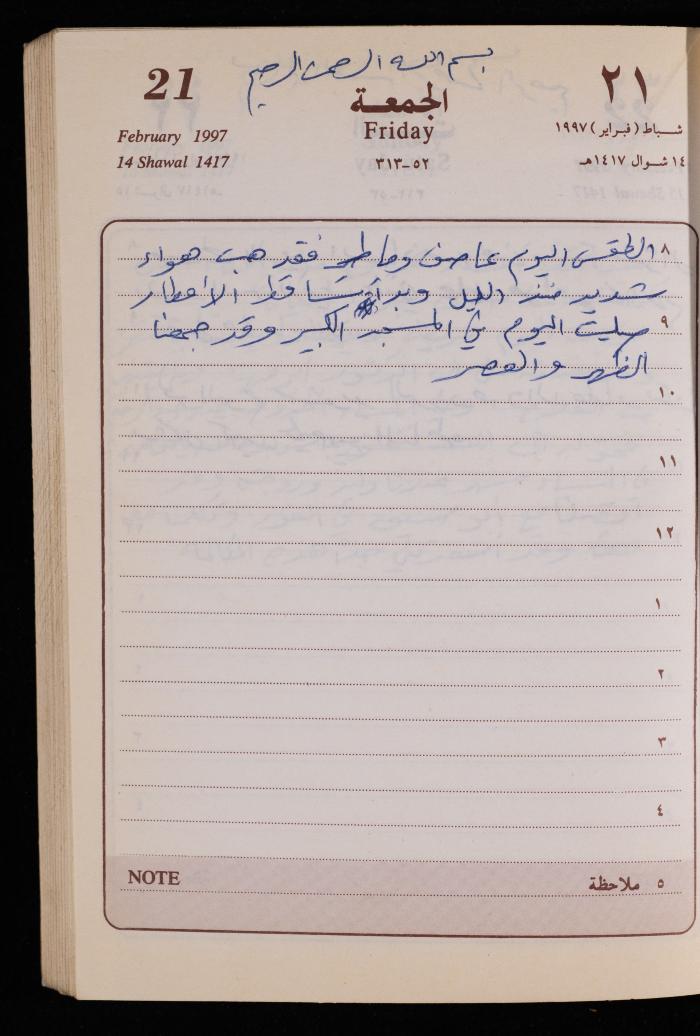 بسم الله الرحمن الرحيم
21
الجمعة
٢١
February 1997
Friday
شباط (فبراير) ١٩٩٧
14 Shawal 1417
٥٢-٣١٣
١٤ شوال ١٤١٧هـ
٨ الطقس اليوم عاصف وماطر فقد هب هواء
شديد منذ الليل وبدأ تساقط الأمطار
٩ صليت اليوم في المسجد الكبير وقد جمعنا
الظهر والعصر
١٠
١١
١٢
١
٢
٣
٤
NOTE
٥ ملاحظة